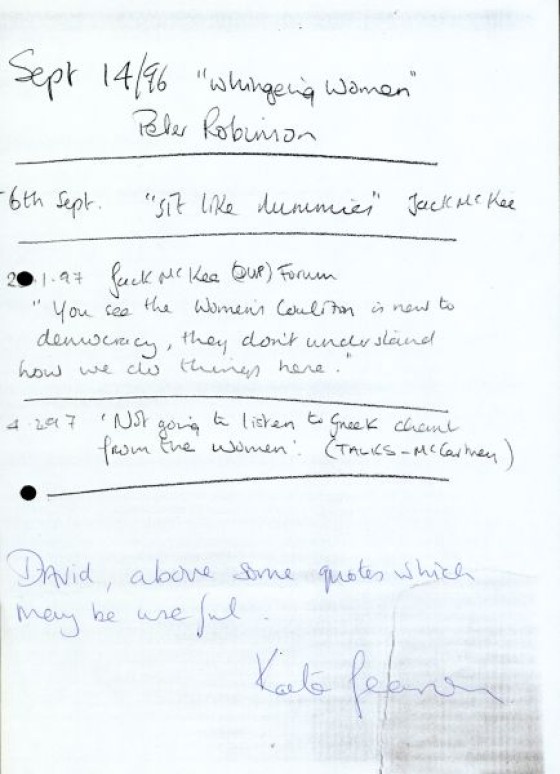 Sept 14/96 "Whingeing Women"
Peter Robinson
6th Sept. "sit like dummies" Jack McKee
1.97 Jack McKee (DUP) Forum
" You see the Women's Coalition is new to
democracy, they don't understand
how we do things here."
4.2.97 'Not going to listen to Greek chant
from the women'. (TALKS - McCartney)
David, above some quotes which
may be useful.
Kate